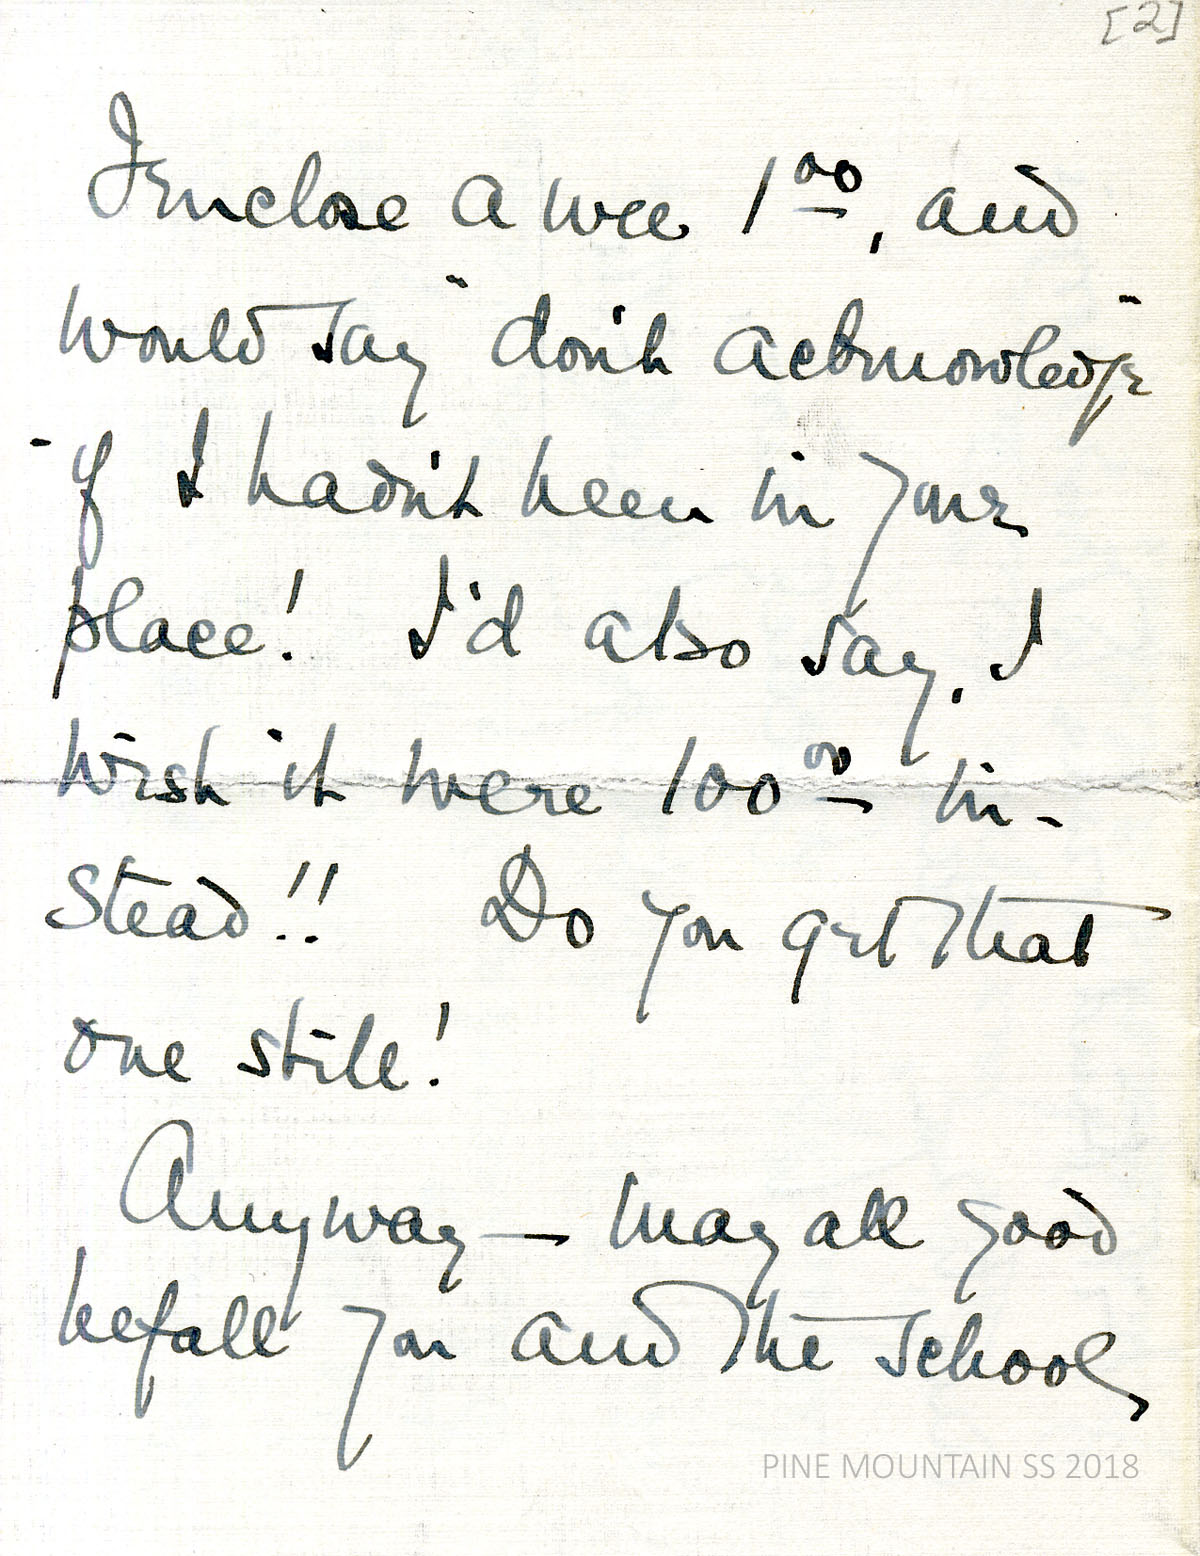 [2]
I enclose a wee 1.00, and
would say "don't acknowledge"
- if I hadn't been in your
place! I'd also say, I
wish it were 100.00 in-
stead!! Do you get that
one still!
Anyway — may all good
befall you and the school,
PINE MOUNTAIN SS 2018